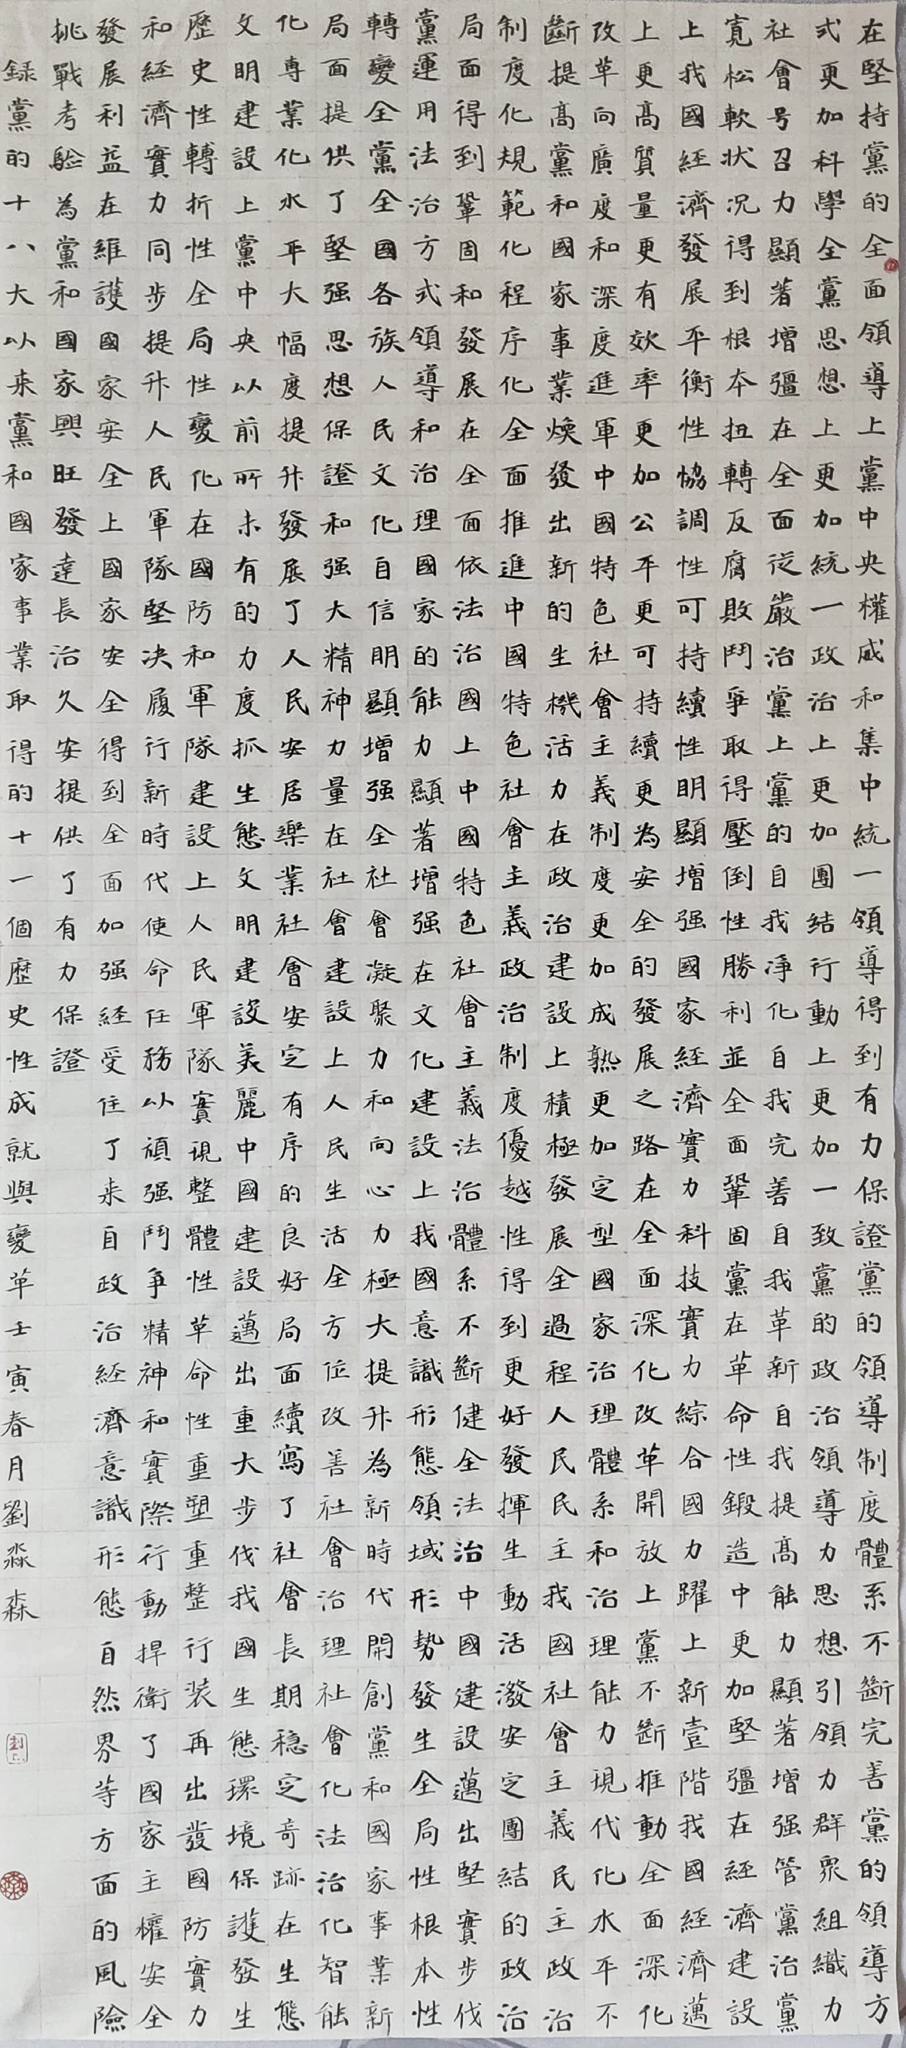 在堅持黨的全面領導上黨中央權威和集中統一領導得到有力保證黨的領導制度體系不斷完善黨的領導方
式更加科學全黨思想上更加統一政治上更加團結行動上更加一致黨的政治領導力思想引領力群眾組織力
社會号召力顯著增彊在全面從嚴治黨上黨的自我淨化自我完善自我革新自我提高能力顯著增强管黨治黨
寬松軟狀况得到根本扭轉反腐敗鬥爭取得壓倒性勝利並全面鞏固黨在革命性鍛造中更加堅彊在經濟建設
上我國經濟發展平衡性協調性可持續性明顯增强國家經濟實力科技實力綜合國力躍上新壹階我國經濟邁
上更高質量更有效率更加公平更可持續更為安全的發展之路在全面深化改革開放上黨不斷推動全面深化
改革向廣度和深度進軍中國特色社會主義制度更加成熟更加定型國家治理體系和治理能力現代化水平不
斷提高黨和國家事業煥發出新的生機活力在政治建設上積極發展全過程人民民主我國社會主義民主政治
制度化規範化程序化全面推進中國特色社會主義政治制度優越性得到更好發揮生動活潑安定團結的政治
局面得到鞏固和發展在全面依法治國上中國特色社會主義法治體系不斷健全法治中國建設邁出堅實步伐
黨運用法治方式領導和治理國家的能力顯著增强在文化建設上我國意識形態領域形勢發生全局性根本性
轉變全黨全國各族人民文化自信明顯增强全社會凝聚力和向心力極大提升為新時代開創黨和國家事業新
局面提供了堅强思想保證和强大精神力量在社會建設上人民生活全方位改善社會治理社會化法治化智能
化専業化水平大幅度提升發展了人民安居樂業社會安定有序的良好局面續寫了社會長期穩定奇跡在生態
文明建設上黨中央以前所未有的力度抓生態文明建設美麗中國建設邁出重大步伐我國生態環境保護發生
歷史性轉折性全局性變化在國防和軍隊建設上人民軍隊實現整體性革命性重塑重整行装再出發國防實力
和経濟實力同步提升人民軍隊堅决履行新時代使命任務以頑强鬥爭精神和實際行動捍衛了國家主權安全
發展利益在維護國家安全上國家安全得到全面加强経受住了来自政治經濟意識形態自然界等方面的風險
挑戰考驗為黨和國家興旺發達長治久安提供了有力保證
録黨的十八大以来黨和國家事業取得的十一個歷史性成就與變革壬寅春月劉淼森